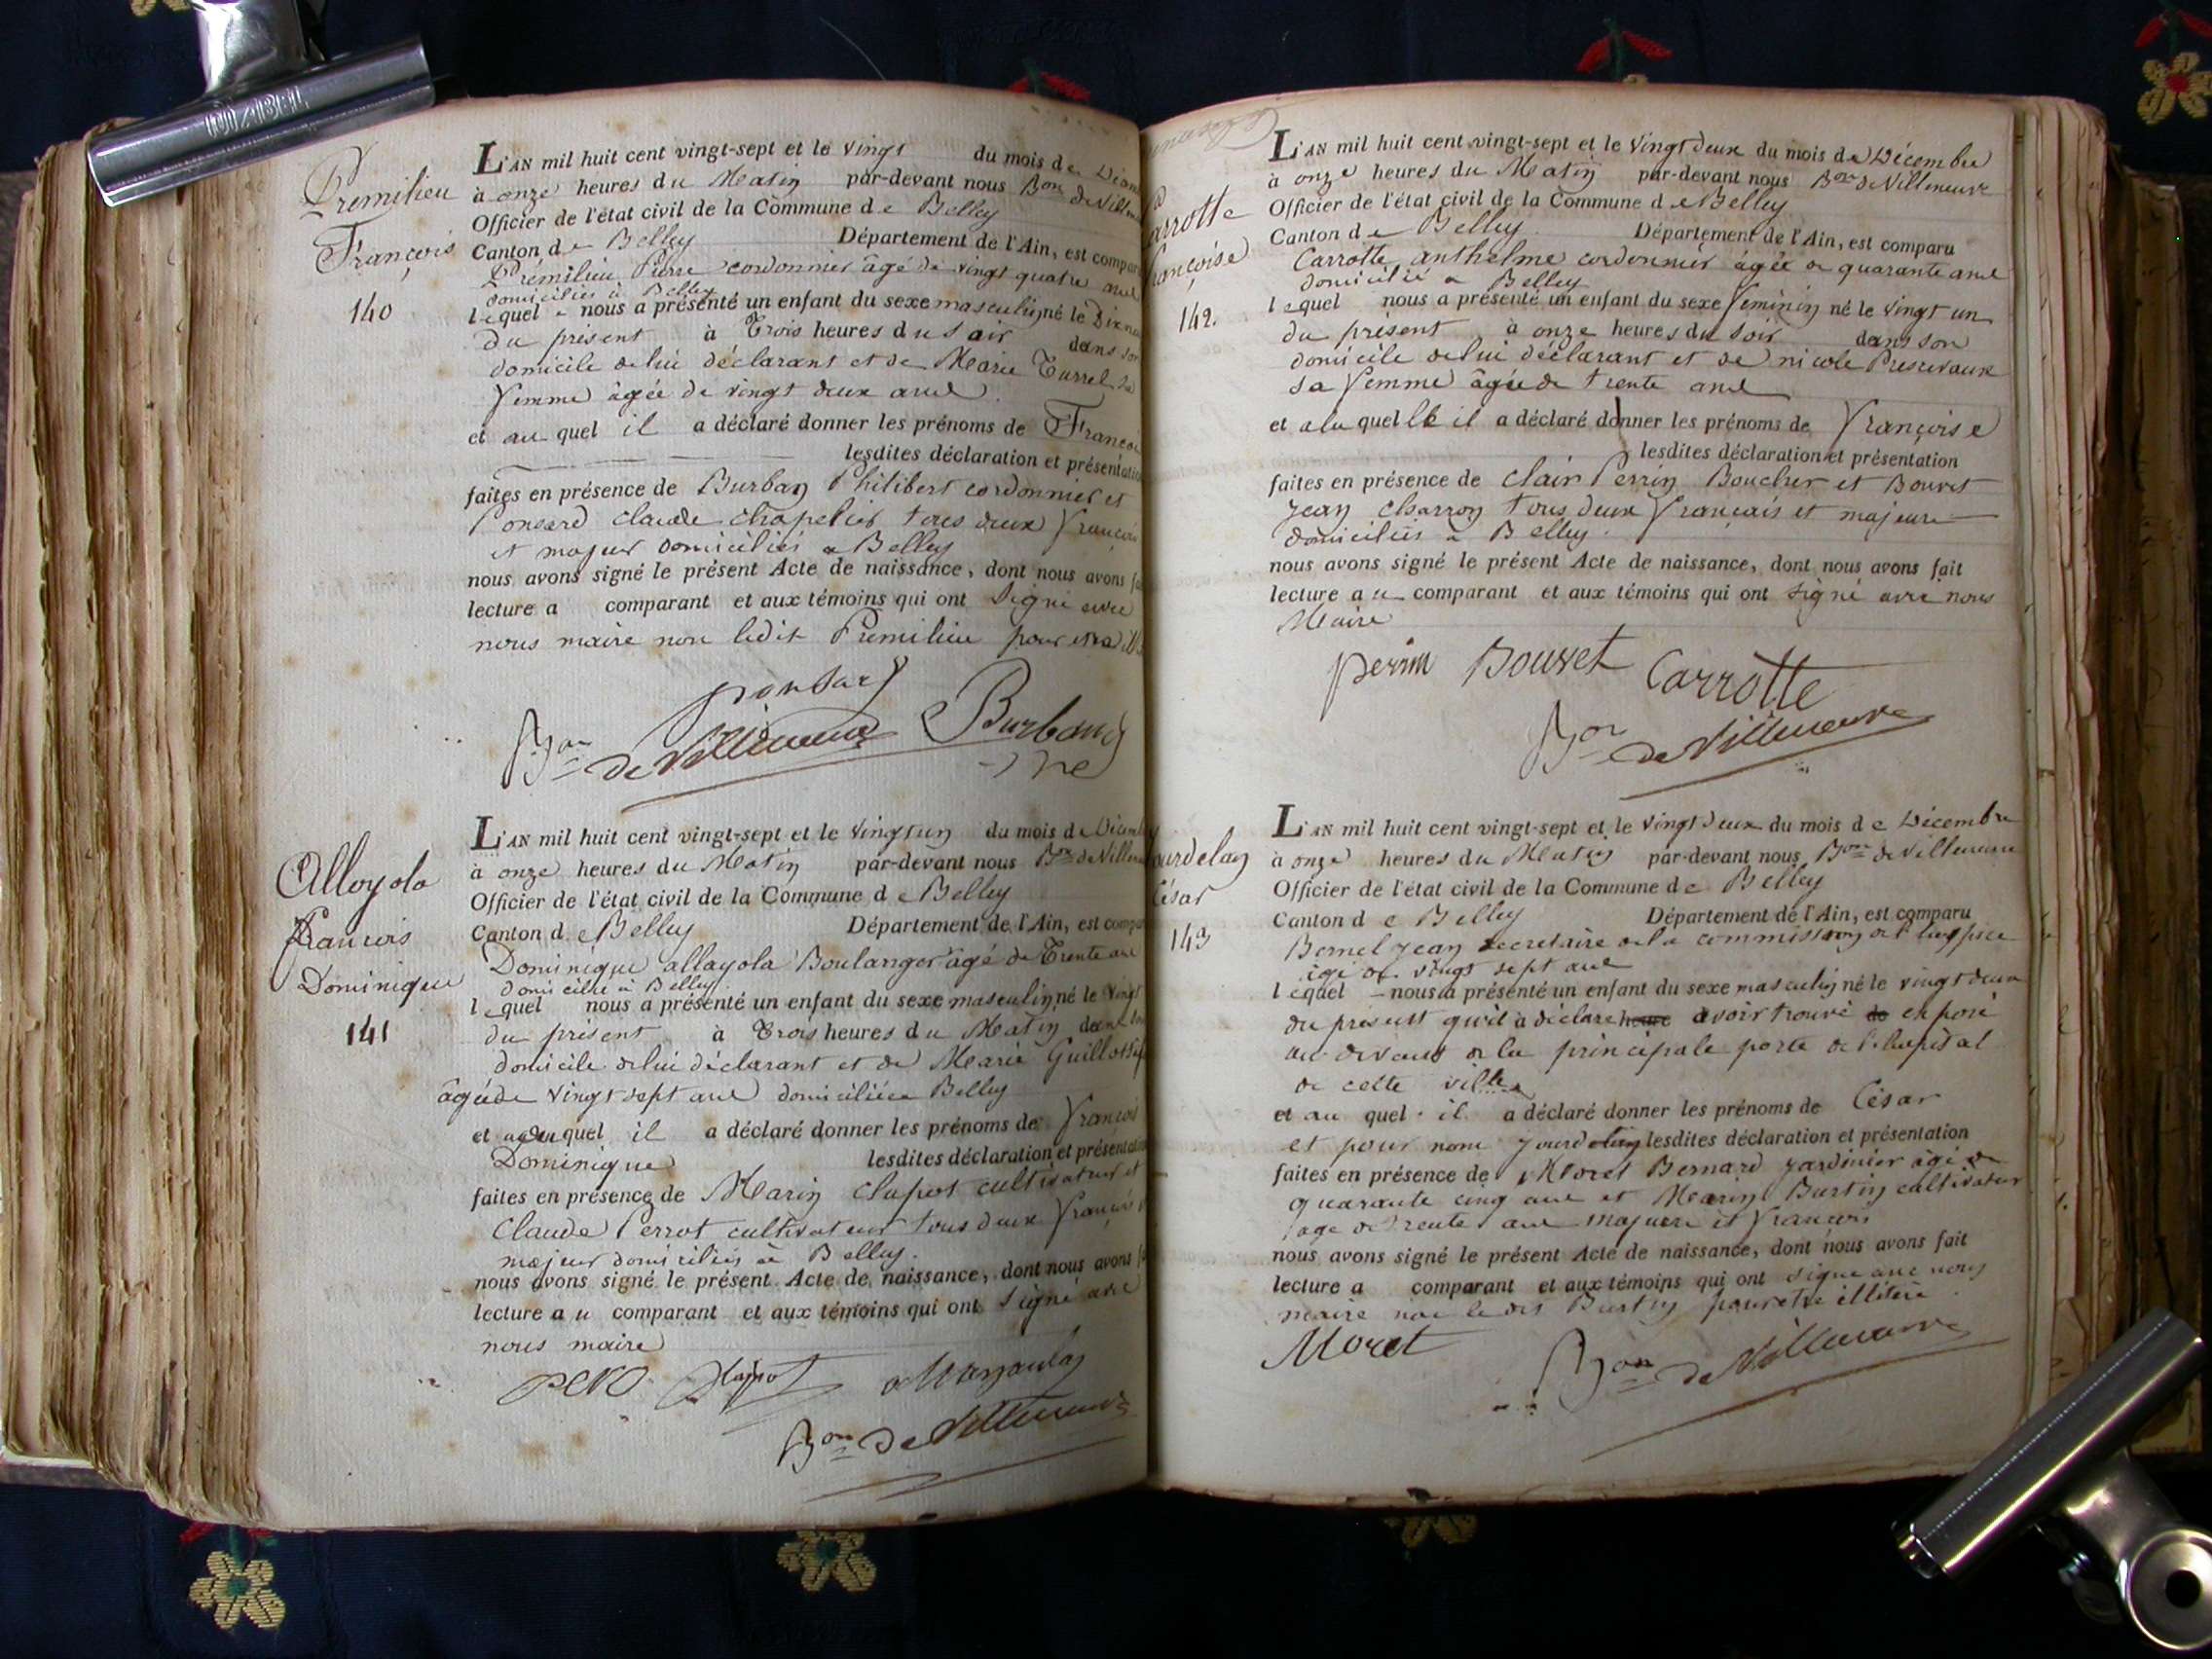 Premilieu
François
140
L'AN mil huit cent vingt-sept et le vingt du mois de
à onze heures du Matin par-devant nous Bon de
Officier de l'état civil de la Commune de Belley
Canton de Belley Département de l'Ain, est
Premilieu Pierre cordonnier âgé de vingt quatre ans
domicilié à Belley
lequel nous a présenté un enfant du sexe masculin né le
du présent à Trois heures du soir dans son
domicile de lui déclarant et de Marie Turrel sa
femme âgée de vingt deux ans
et au quel il a déclaré donner les prénoms de
lesdites déclaration et
faites en présence de Burban Philibert cordonnier et
Ponsard claude chapelier tous deux
et majeur domiciliés a Belley
nous avons signé le présent Acte de naissance, dont nous avons
lecture a comparant et aux témoins qui ont signé avec
nous maire non ledit Premilieu pour
ponsard
Bon de Villeneuve Burband
Alloyola
françois
Dominique
141
L'AN mil huit cent vingt-sept et le vingt un du mois de
à onze heures du Matin par-devant nous Bon de
Officier de l'état civil de la Commune de Belley
Canton de Belley Département de l'Ain, est
Dominique allayola Boulanger âgé de Trente ans
domicilié à Belley
lequel nous a présenté un enfant du sexe masculin né le vingt
du présent à Trois heures du Matin dans
domicile de lui déclarant et de Marie
âgée de vingt sept ans domiciliée a Belley
et quel il a déclaré donner les prénoms de françois
Dominique lesdites déclaration et
faites en présence de Marin clapot cultivateur et
Claude Perrot cultivateur tous deux
majeur domiciliés à Belley.
nous avons signé le présent Acte de naissance, dont nous avons
lecture au comparant et aux témoins qui ont signé avec
nous maire
Clapot
Bon de Villeneuve
142.
L'AN mil huit cent vingt-sept et le vingt deux du mois de Décembre
à onze heures du Matin par-devant nous Bon de Villeneuve
Officier de l'état civil de la Commune de Belley
Canton de Belley Département de l'Ain, est comparu
Carrotte anthelme cordonnier âgée de quarante ans
domicilié a Belley
lequel nous a présenté un enfant du sexe feminin né le vingt un
du présent à onze heures du soir dans son
domicile de lui déclarant et de nicole
sa femme âgée de trente ans
et a la quelle il a déclaré donner les prénoms de françoise
lesdites déclaration et présentation
faites en présence de clair Perrin Boucher et Bouvet
Jean charron tous deux français et majeurs
domiciliés a Belley.
nous avons signé le présent Acte de naissance, dont nous avons fait
lecture au comparant et aux témoins qui ont signé avec nous
Maire
perrin Bouvet Carrotte
Bon de Villeneuve
César
143
L'AN mil huit cent vingt-sept et le vingt deux du mois de Décembre
à onze heures du Matin par-devant nous Bon de Villeneuve
Officier de l'état civil de la Commune de Belley
Canton de Belley Département de l'Ain, est comparu
Bernel Jean secretaire de la commission de l'hospice
âgé de vingt sept ans
lequel nous a présenté un enfant du sexe masculin né le vingt deux
du présent qu'il à déclaré avoir trouvé exposé
au devant de la principale porte de l'hopital
de cette ville
et au quel il a déclaré donner les prénoms de César
et pour nom Jourdelan lesdites déclaration et présentation
faites en présence de Moret Bernard jardinier âgé de
quarante cinq ans et Marin Burtin cultivateur
age de trente ans majeurs et françois
nous avons signé le présent Acte de naissance, dont nous avons fait
lecture a comparant et aux témoins qui ont signé avec nous
maire non le dit Burtin pour etre illitéré
Moret Bon de Villeneuve